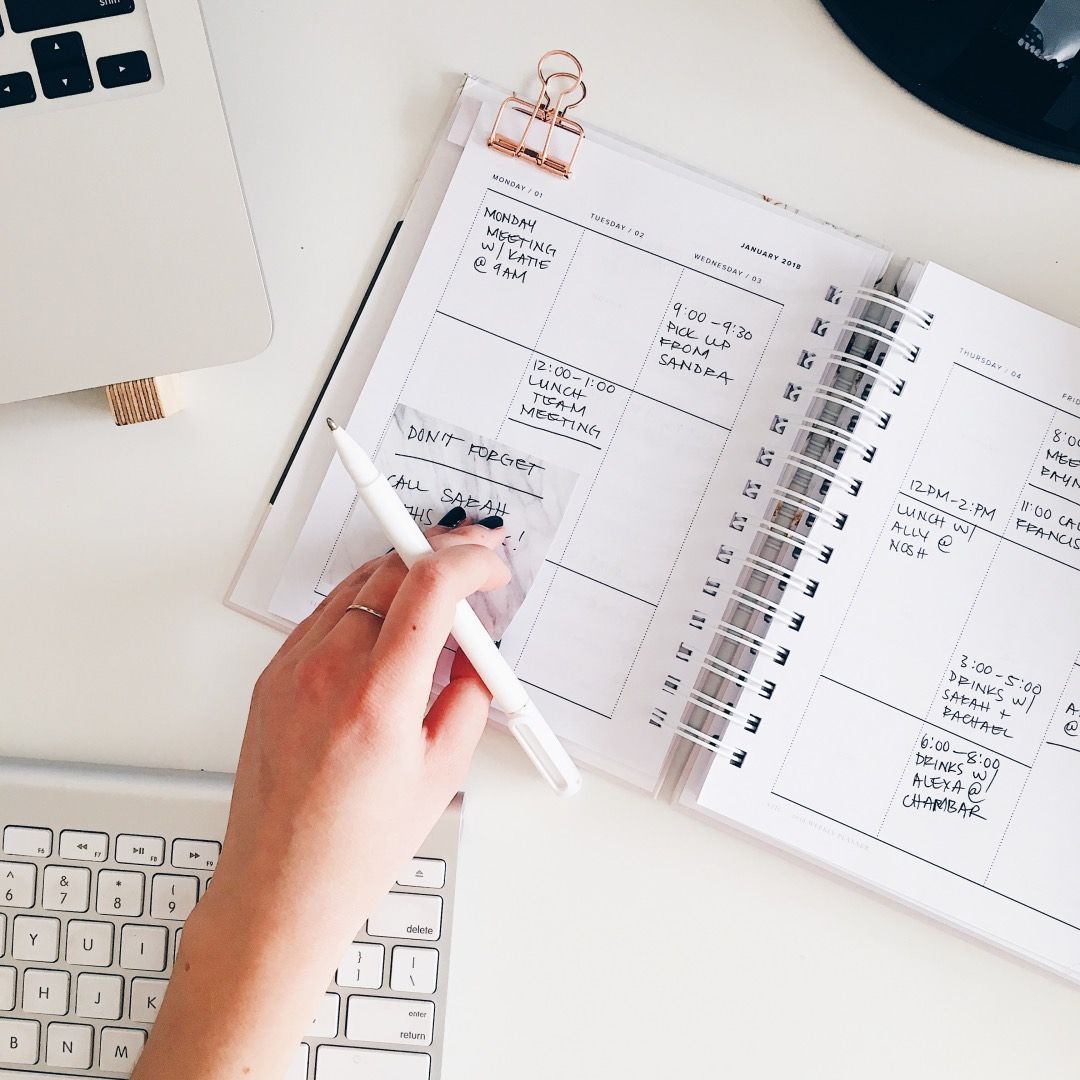 MONDAY / 01
MONDAY
MEETING
W/ KATIE
@ 9AM
TUESDAY / 02
12:00-1:00
LUNCH
TEAM
MEETING
JANUARY 2018
WEDNESDAY / 03
9:00-9:30
PICK UP
FROM
SANDRA
DON'T FORGET
CALL SARAH
THIS
THURSDAY / 04
12PM-2PM
LUNCH W/
ALLY @
NOSH
8:0
MEE
RAYN
11:00 CAL
FRANCIS
3:00-5:00
DRINKS W/
SARAH +
RACHAEL
6:00-8:00
DRINKS W/
ALEXA @
CHAMBAR
A
@
WEEKLY PLANNER
shift
F6
F7
F8
F9
^ 6
& 7
* 8
( 9
delete
Y
U
I
} ]
| \
H
J
K
enter
return
B
N
M